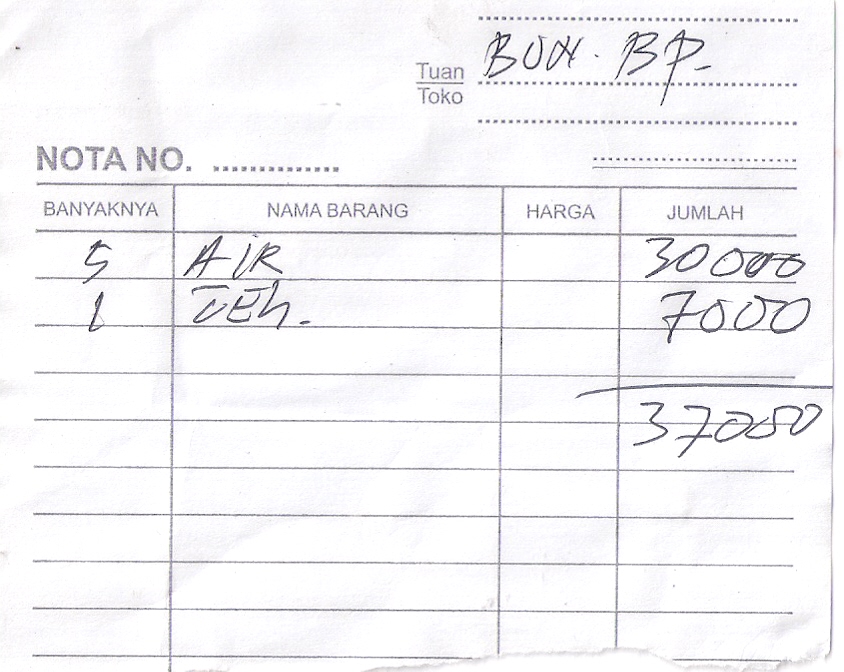 BON. BP.
Tuan
Toko
NOTA NO. ..............
BANYAKNYA NAMA BARANG HARGA JUMLAH
5 AIR 30000
1 TEh. 7000
37000